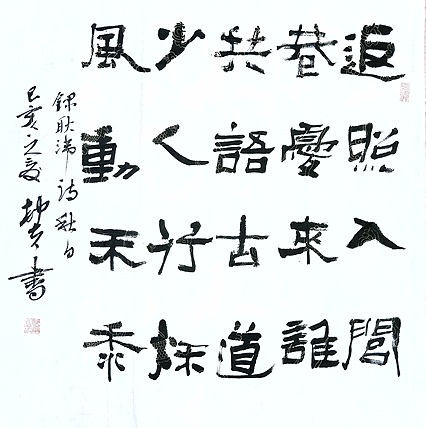 返照入閭
巷憂來誰
共語古道
少人行秋
風動禾黍
錄耿湋詩秋日
己亥之夏書